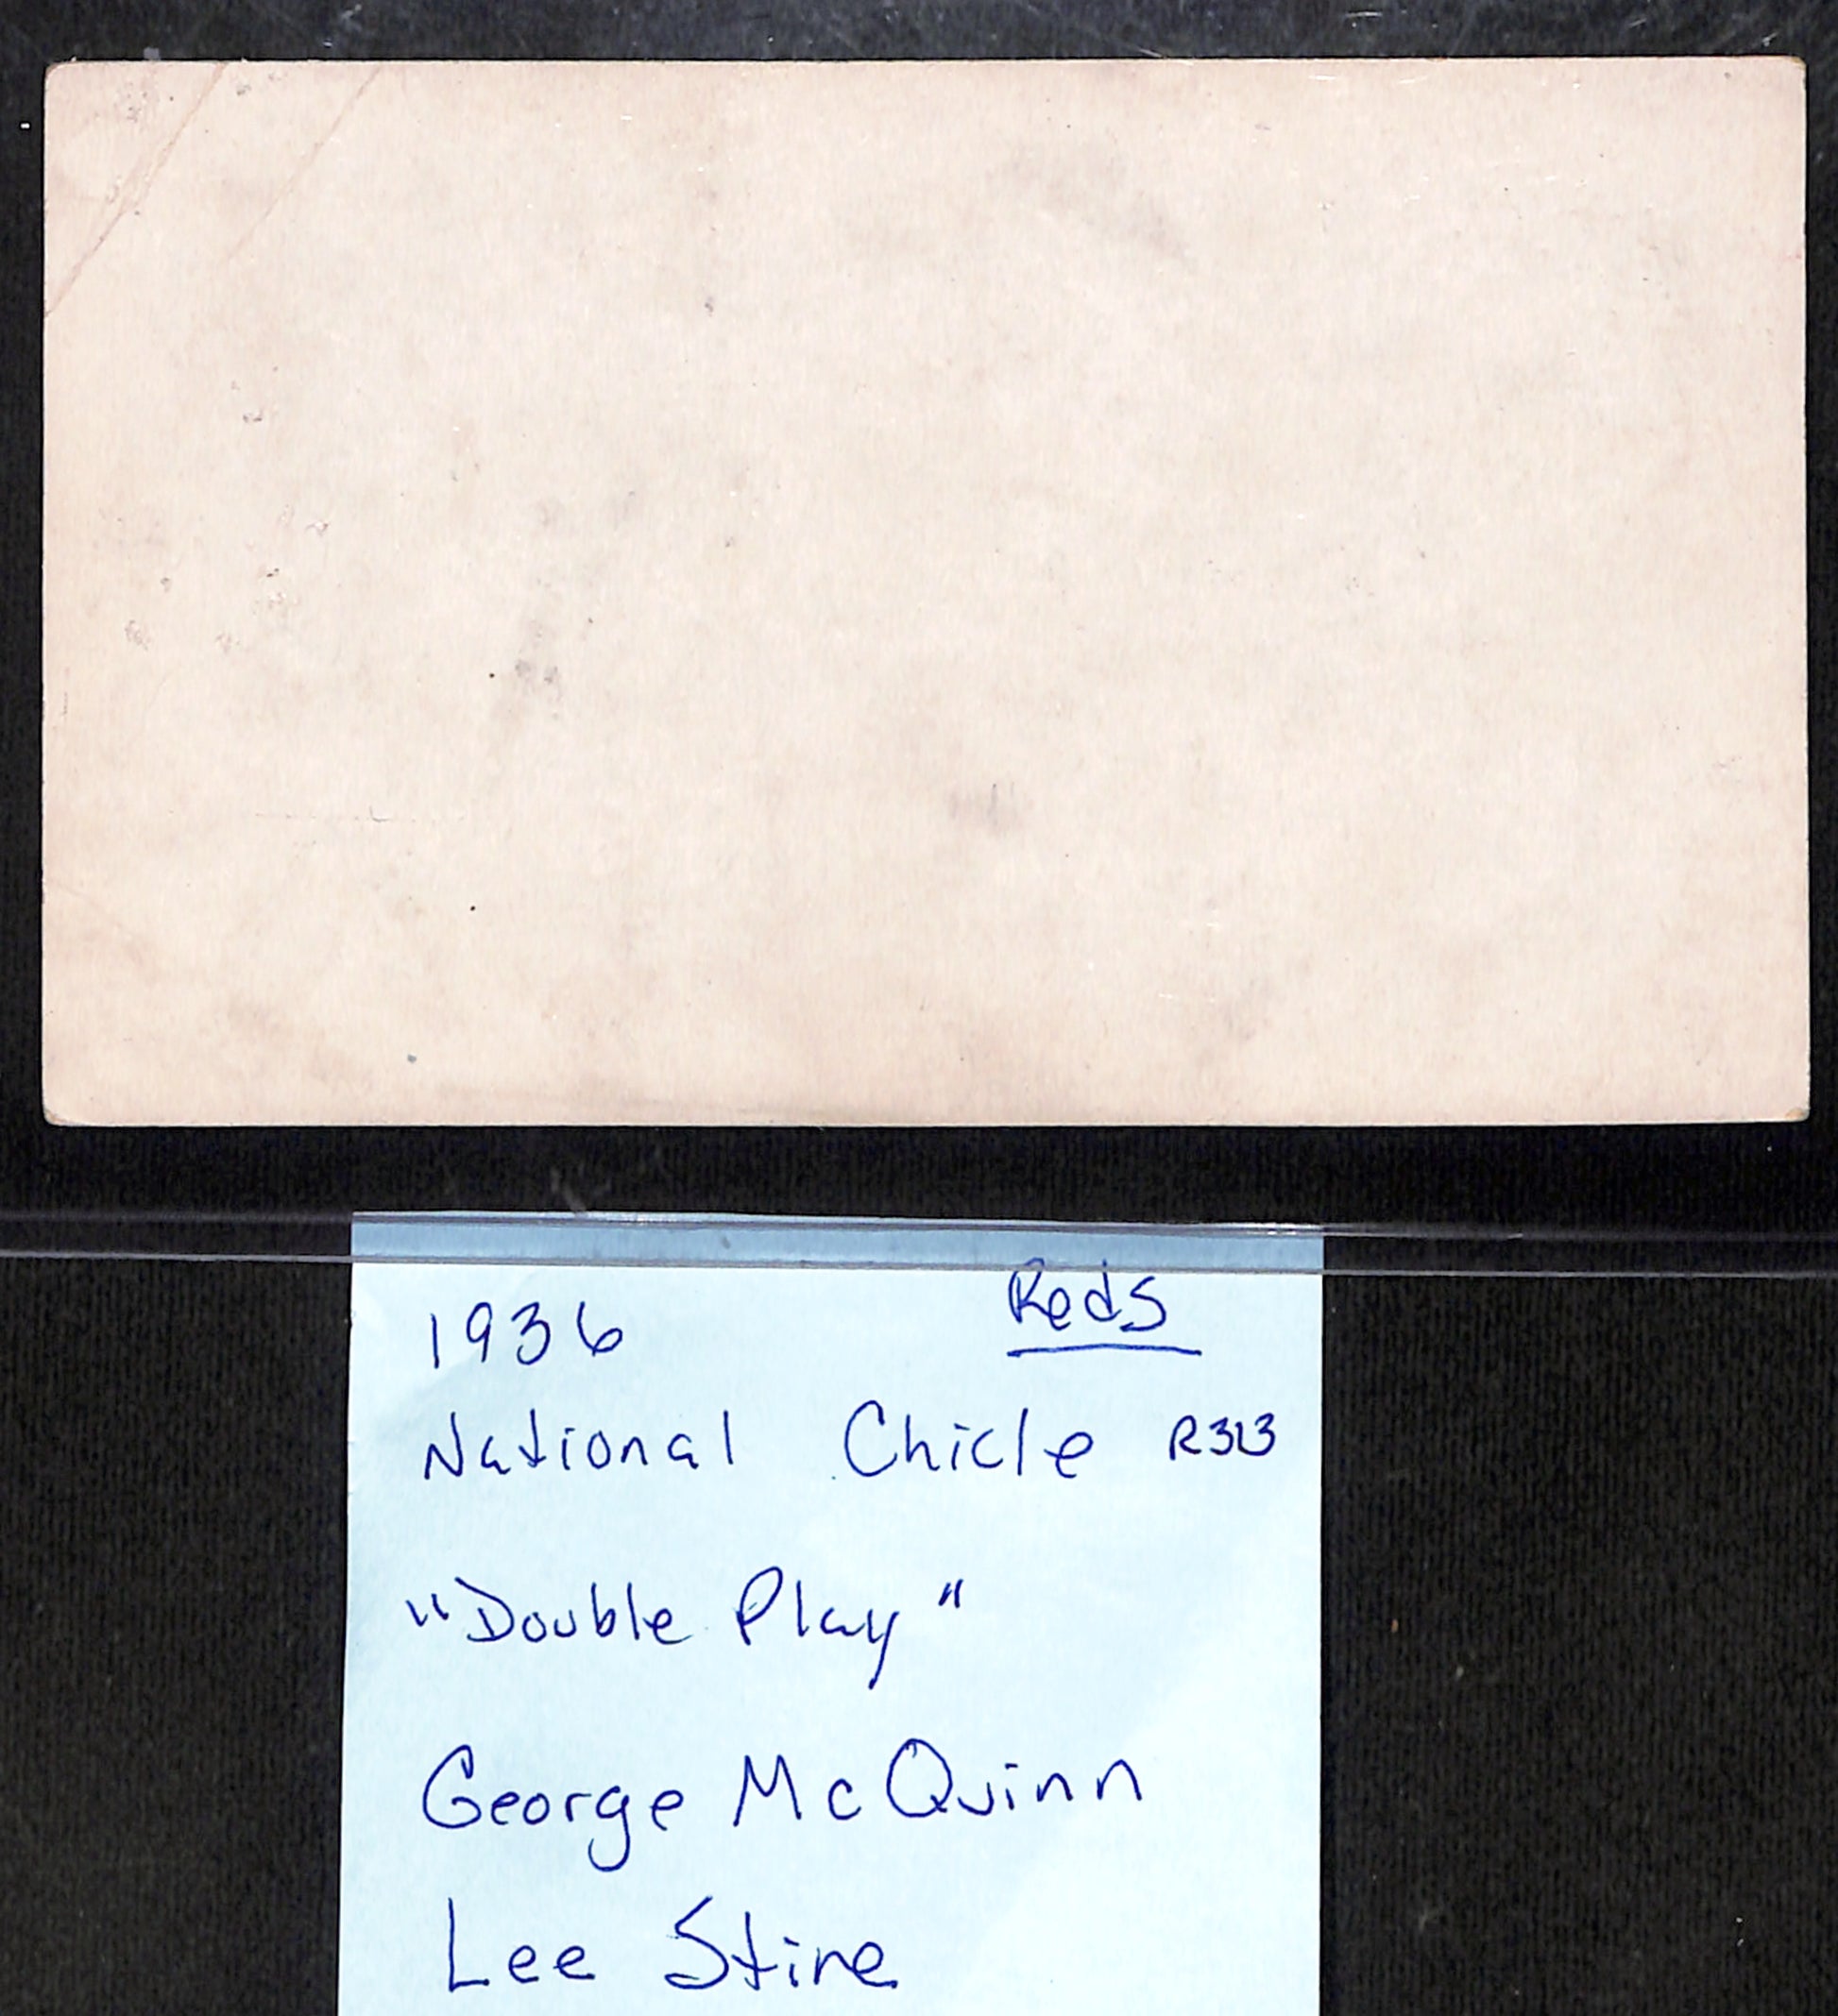 Reds
1936
National Chicle R313
"Double Play"
George McQuinn
Lee Stine